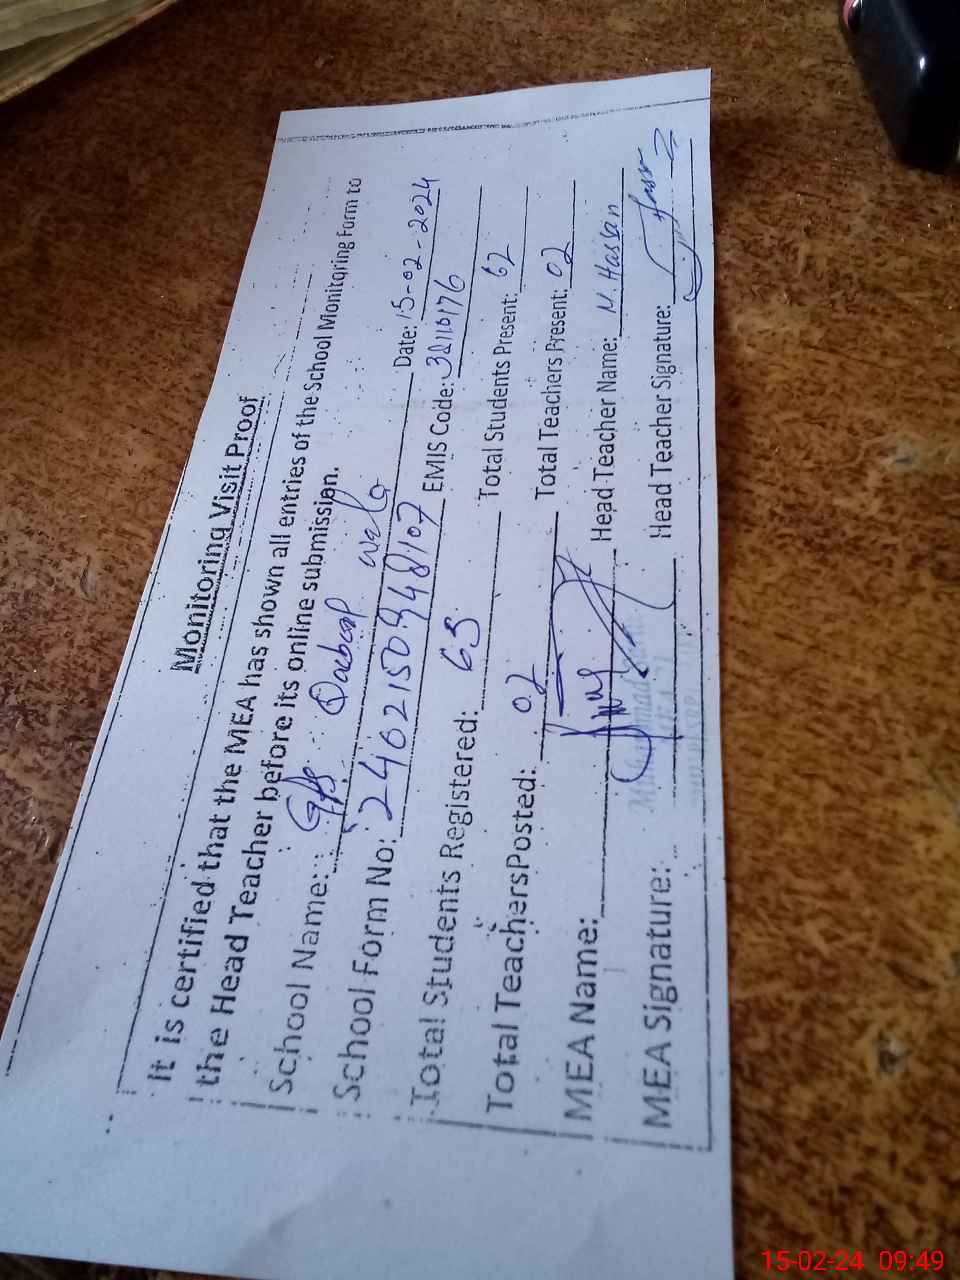 Monitoring Visit Proof
It is certified that the MEA has shown all entries of the School Monitoring Form to
the Head Teacher before its online submission.
School Name: GPS wala Date: 15-02-2024
School Form No: 24621509348107 EMIS Code: 38110176
Total Students Registered: 63 Total Students Present: 62
Total TeachersPosted: 02 Total Teachers Present: 02
MEA Name: Head Teacher Name: M. Hassan
MEA Signature: Head Teacher Signature:
15-02-24 09:49